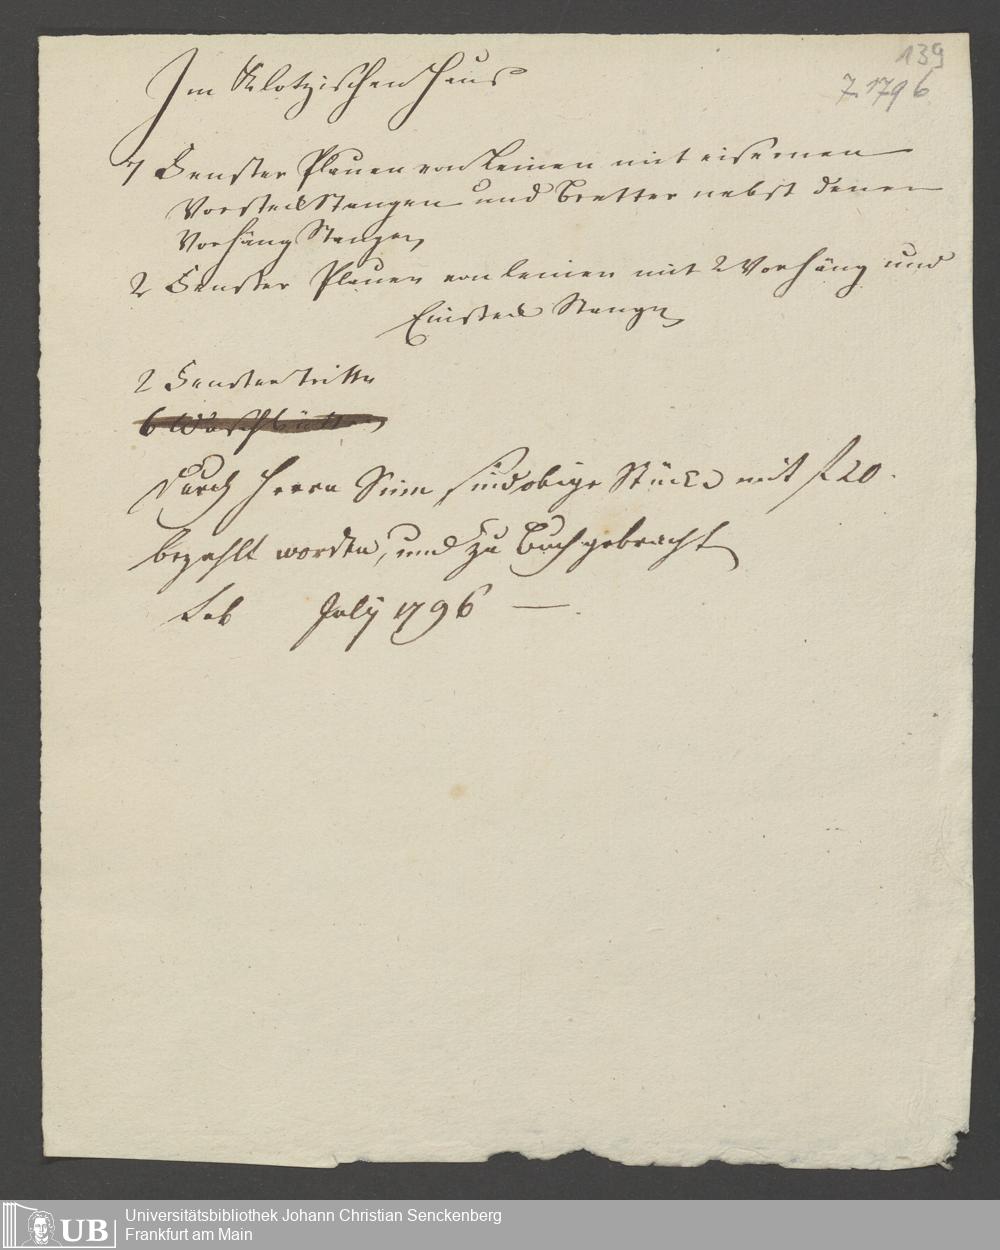 139
7. 1796
Im Klotzischen Haus
7 Fenster Plauen von Leinen mit eisernen
Vorsteck Stangen und Bretter nebst denen
Vorhäng Stangen
2 Fenster Plauen von leinen mit 2 Vorhäng und
Einsteck Stangen
2 Fenster tritte
6 Waschbütten
Durch Herrn sind obige Stücke mit f 20.
bezahlt worden, und zu Buch gebracht
July 1796 —.
UB
Universitätsbibliothek Johann Christian Senckenberg
Frankfurt am Main